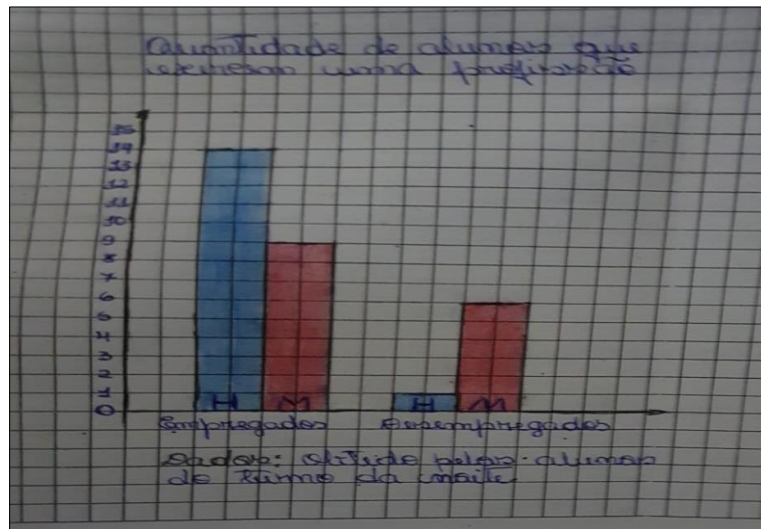 Quantidade de alunos que
exercem uma profissão
15
14
13
12
11
10
9
8
7
6
5
4
3
2
1
0
H M H M
Empregados Desempregados
Dados: Obtido pelos alunos
do turno da noite